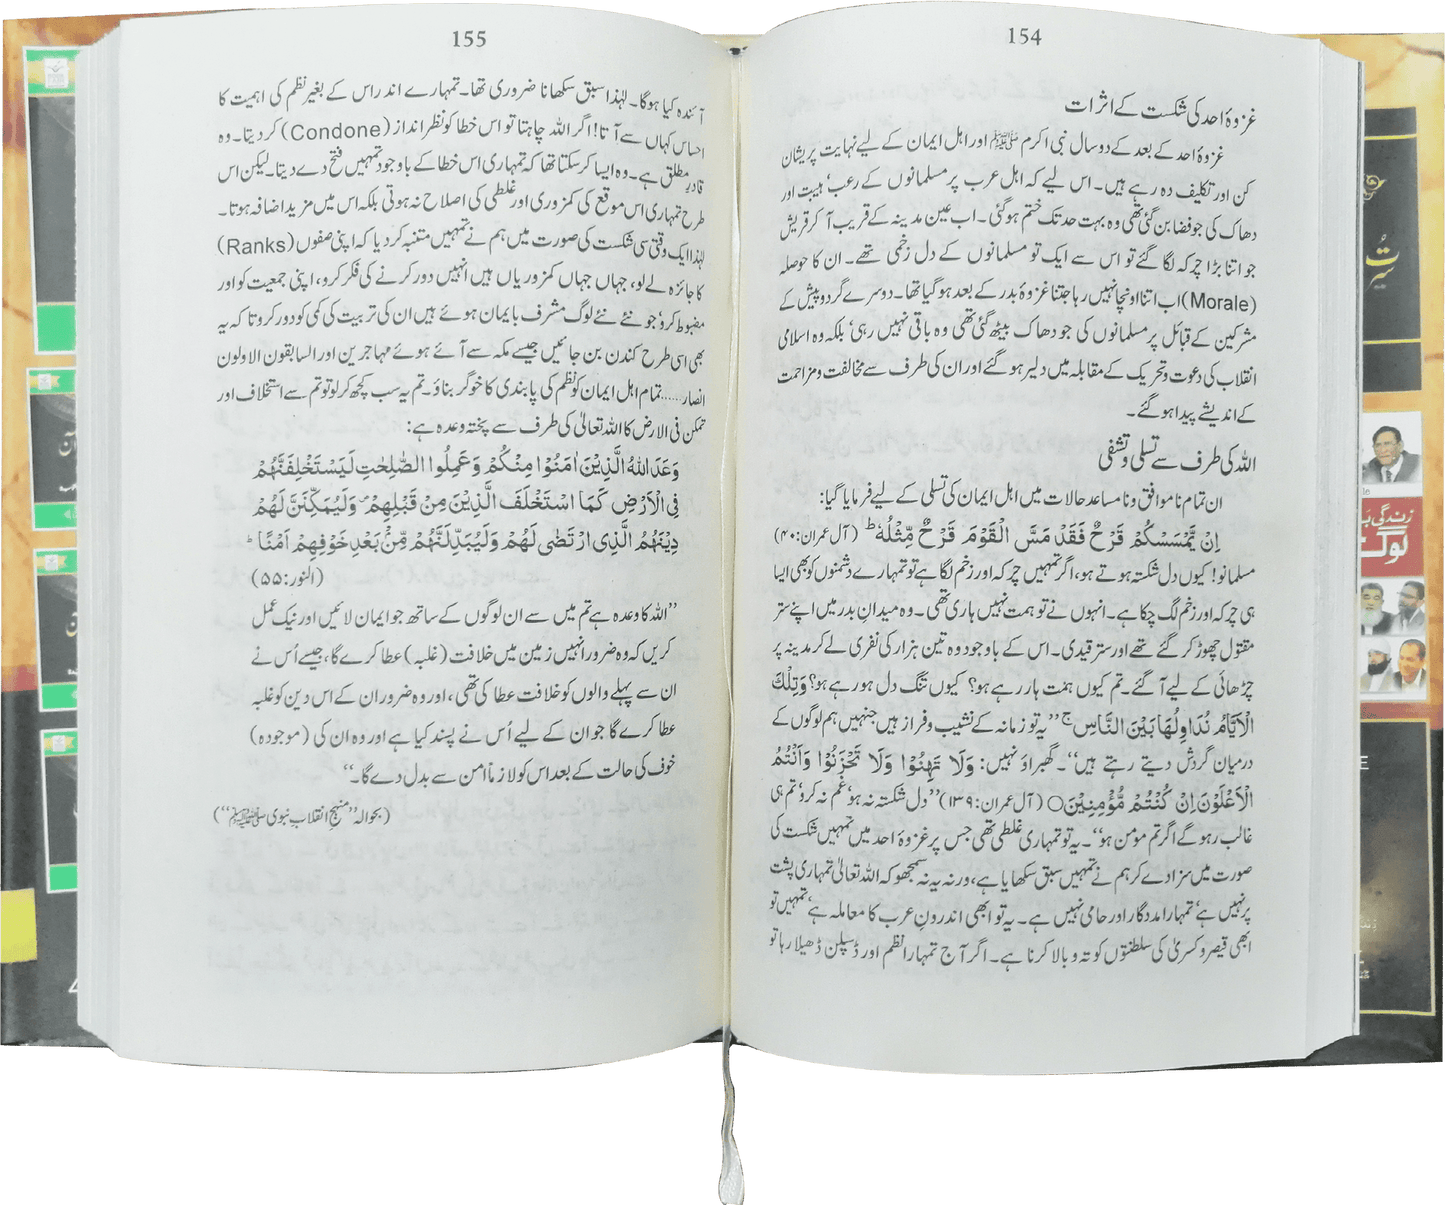 154
غزوۂ احد کی شکست کے اثرات
غزوۂ احد کے بعد کے دو سال نبی اکرم ﷺ اور اہل ایمان کے لیے نہایت پریشان
کن اور تکلیف دہ رہے ہیں۔ اس لیے کہ اہل عرب پر مسلمانوں کے رعب، ہیبت اور
دھاک کی جو فضا بن گئی تھی وہ بہت حد تک ختم ہو گئی۔ اب عین مدینہ کے قریب آ کر قریش
جو اتنا بڑا چرکہ لگا گئے تو اس سے ایک تو مسلمانوں کے دل زخمی تھے۔ ان کا حوصلہ
(Morale) اب اتنا اونچا نہیں رہا جتنا غزوۂ بدر کے بعد ہو گیا تھا۔ دوسرے گرد و پیش کے
مشرکین کے قبائل پر مسلمانوں کی جو دھاک بیٹھ گئی تھی وہ باقی نہیں رہی، بلکہ وہ اسلامی
انقلاب کی دعوت و تحریک کے مقابلہ میں دلیر ہو گئے اور ان کی طرف سے مخالفت و مزاحمت
کے اندیشے پیدا ہو گئے۔
اللہ کی طرف سے تسلی و تشفی
ان تمام نا موافق و نا مساعد حالات میں اہل ایمان کی تسلی کے لیے فرمایا گیا:
اِنْ يَّمْسَسْكُمْ قَرْحٌ فَقَدْ مَسَّ الْقَوْمَ قَرْحٌ مِّثْلُهٗ ؕ (آل عمران:۴۰)
مسلمانو! کیوں دل شکستہ ہوتے ہو، اگر تمہیں چرکہ اور زخم لگا ہے تو تمہارے دشمنوں کو بھی ایسا
ہی چرکہ اور زخم لگ چکا ہے۔ انہوں نے تو ہمت نہیں ہاری تھی۔ وہ میدانِ بدر میں اپنے ستر
مقتول چھوڑ کر گئے تھے اور ستر قیدی۔ اس کے باوجود وہ تین ہزار کی نفری لے کر مدینہ پر
چڑھائی کے لیے آ گئے۔ تم کیوں ہمت ہار رہے ہو؟ کیوں تنگ دل ہو رہے ہو؟ وَتِلْكَ
الْاَيَّامُ نُدَاوِلُهَا بَيْنَ النَّاسِ ۚ ’’یہ تو زمانہ کے نشیب و فراز ہیں جنہیں ہم لوگوں کے
درمیان گردش دیتے رہتے ہیں‘‘۔ گھبراؤ نہیں: وَلَا تَهِنُوْا وَلَا تَحْزَنُوْا وَاَنْتُمُ
الْاَعْلَوْنَ اِنْ كُنْتُمْ مُّؤْمِنِيْنَ○ (آل عمران:۱۳۹) ’’دل شکستہ نہ ہو، غم نہ کرو، تم ہی
غالب رہو گے اگر تم مومن ہو‘‘۔ یہ تو تمہاری غلطی تھی جس پر غزوۂ احد میں تمہیں شکست کی
صورت میں سزا دے کر ہم نے تمہیں سبق سکھایا ہے، ورنہ یہ نہ سمجھو کہ اللہ تعالیٰ تمہاری پشت
پر نہیں ہے، تمہارا مددگار اور حامی نہیں ہے۔ یہ تو ابھی اندرونِ عرب کا معاملہ ہے، تمہیں تو
ابھی قیصر و کسریٰ کی سلطنتوں کو تہ و بالا کرنا ہے۔ اگر آج تمہارا نظم اور ڈسپلن ڈھیلا رہا تو
155
آئندہ کیا ہوگا۔ لہٰذا سبق سکھانا ضروری تھا۔ تمہارے اندر اس کے بغیر نظم کی اہمیت کا
احساس کہاں سے آتا! اگر اللہ چاہتا تو اس خطا کو نظر انداز (Condone) کر دیتا۔ وہ
قادرِ مطلق ہے۔ وہ ایسا کر سکتا تھا کہ تمہاری اس خطا کے باوجود تمہیں فتح دے دیتا۔ لیکن اس
طرح تمہاری اس موقع کی کمزوری اور غلطی کی اصلاح نہ ہوتی بلکہ اس میں مزید اضافہ ہوتا۔
لہٰذا ایک وقتی سی شکست کی صورت میں ہم نے تمہیں متنبہ کر دیا کہ اپنی صفوں (Ranks)
کا جائزہ لے لو، جہاں جہاں کمزوریاں ہیں انہیں دور کرنے کی فکر کرو، اپنی جمعیت کو اور
مضبوط کرو، جو نئے نئے لوگ مشرف بایمان ہوئے ہیں ان کی تربیت کی کمی کو دور کرو تا کہ یہ
بھی اسی طرح کندن بن جائیں جیسے مکہ سے آئے ہوئے مہاجرین اور السابقون الاولون
انصار...... تمام اہل ایمان کو نظم کی پابندی کا خوگر بناؤ۔ تم یہ سب کچھ کر لو تو تم سے استخلاف اور
تمکن فی الارض کا اللہ تعالیٰ کی طرف سے پختہ وعدہ ہے:
وَعَدَ اللهُ الَّذِيْنَ اٰمَنُوْا مِنْكُمْ وَعَمِلُوا الصّٰلِحٰتِ لَيَسْتَخْلِفَنَّهُمْ
فِي الْاَرْضِ كَمَا اسْتَخْلَفَ الَّذِيْنَ مِنْ قَبْلِهِمْ ۪ وَلَيُمَكِّنَنَّ لَهُمْ
دِيْنَهُمُ الَّذِى ارْتَضٰى لَهُمْ وَلَيُبَدِّلَنَّهُمْ مِّنْۢ بَعْدِ خَوْفِهِمْ اَمْنًا ؕ
(النور:۵۵)
’’اللہ کا وعدہ ہے تم میں سے ان لوگوں کے ساتھ جو ایمان لائیں اور نیک عمل
کریں کہ وہ ضرور انہیں زمین میں خلافت (غلبہ) عطا کرے گا، جیسے اُس نے
ان سے پہلے والوں کو خلافت عطا کی تھی، اور وہ ضرور ان کے اس دین کو غلبہ
عطا کرے گا جو ان کے لیے اُس نے پسند کیا ہے اور وہ ان کی (موجودہ)
خوف کی حالت کے بعد اس کو لازماً امن سے بدل دے گا۔‘‘
(بحوالہ ’’منہج انقلاب نبوی ﷺ‘‘)